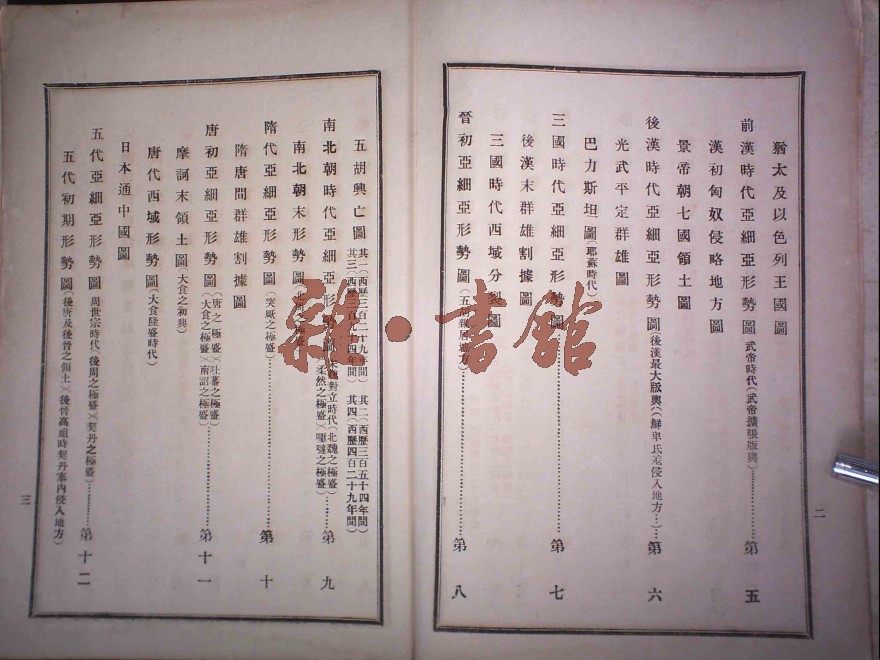 二
猶太及以色列王國圖
前漢時代亞細亞形勢圖 武帝時代(武帝擴張版輿)……第五
漢初匈奴侵略地方圖
景帝朝七國領土圖
後漢時代亞細亞形勢圖(後漢最大版輿)(鮮卑氏羌侵入地方)……第六
光武平定群雄圖
巴力斯坦圖(耶蘇時代)
三國時代亞細亞形勢圖……第七
後漢末群雄割據圖
三國時代西域分割圖
晉初亞細亞形勢圖(五胡雜居地方)……第八
五胡興亡圖 其一(西歷三百二十九年間) 其二(西歷三百五十四年間) 其三(西歷三百九十四年間) 其四(西歷四百二十九年間)
南北朝時代亞細亞形勢圖 宋魏對立時代(北魏之極盛)(柔然之極盛)(嚈噠之極盛)……第九
南北朝末形勢圖
隋代亞細亞形勢圖(突厥之極盛)……第十
隋唐間群雄割據圖
唐初亞細亞形勢圖(唐之極盛)(吐蕃之極盛)(大食之極盛)(南詔之極盛)……第十一
摩訶末領土圖(大食之初興)
唐代西域形勢圖(大食隆盛時代)
日本通中國圖
五代亞細亞形勢圖 周世宗時代(後周之極盛)(契丹之極盛)……第十二
五代初期形勢圖(後唐及後晉之領土)(後晉高祖時契丹塞內侵入地方)
三
雜·書館